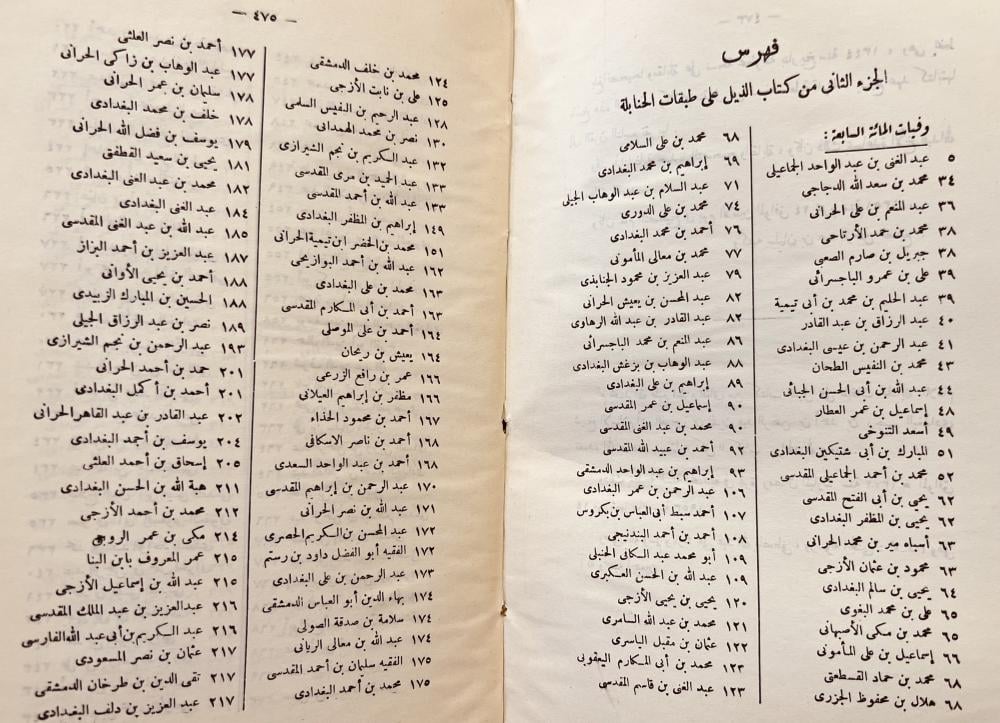 فهرس
الجزء الثانى من كتاب الذيل على طبقات الحنابلة
وفيات المائة السابعة :
٥ عبد الغنى بن عبد الواحد الجماعيلى
٣٤ محمد بن سعد الله الدجاجى
٣٦ عبد المنعم بن على الحرانى
٣٨ محمد بن حمد الأرتاحى
٣٨ جبريل بن صارم الصعبى
٣٩ على بن عمرو الباجسرائى
٣٩ عبد الحليم بن محمد بن أبى تيمية
٤٠ عبد الرزاق بن عبد القادر
٤١ عبد الرحمن بن عيسى البغدادى
٤٣ محمد بن النفيس الطحان
٤٤ عبد الله بن أبى الحسن الجبائى
٤٨ إسماعيل بن عمر العطار
٤٩ أسعد التنوخى
٥١ المبارك بن أبى شتيكين البغدادى
٥٢ محمد بن أحمد الجماعيلى المقدسى
٦٢ يحيى بن أبى الفتح المقدسى
٦٢ يحيى بن المظفر البغدادى
٦٣ أسباه مير بن محمد الحرانى
٦٣ محمود بن عثمان الأزجى
٦٤ يحيى بن سالم البغدادى
٦٥ على بن محمد البغوى
٦٥ محمد بن مكى الأصبهانى
٦٦ إسماعيل بن على المأمونى
٦٨ محمد بن حماد القسطعتى
٦٨ هلال بن محفوظ الجزرى
٦٨ محمد بن على السلامى
٦٩ إبراهيم بن محمد البغدادى
٧١ عبد السلام بن عبد الوهاب الجيلى
٧٤ محمد بن على الدورى
٧٦ أحمد بن محمد البغدادى
٧٧ محمد بن معالى المأمونى
٧٩ عبد العزيز بن محمود الجنابذى
٨٢ عبد المحسن بن يعيش الحرانى
٨٢ عبد القادر بن عبد الله الرهاوى
٨٦ عبد المنعم بن محمد الباجسرائى
٨٨ عبد الوهاب بن بزغش البغدادى
٨٩ إبراهيم بن على البغدادى
٩٠ إسماعيل بن عمر المقدسى
٩٠ محمد بن عبد الغنى المقدسى
٩٢ أحمد بن عبيد الله المقدسى
٩٣ إبراهيم بن عبد الواحد الدمشقى
١٠٦ عبد الرحمن بن عمر البغدادى
١٠٧ أحمد سبط أبى العباس بن بكروس
١٠٨ أحمد بن أحمد البندنيجى
١٠٩ أبو محمد عبد الكافى الحنبلى
١٠٩ عبد الله بن الحسن العسكبرى
١٢٠ يحيى بن يحيى الأزجى
١٢١ محمد بن عبد الله السامرى
١٢٢ عثمان بن مقبل الياسرى
١٢٣ محمد بن أبى المكارم اليعقوبى
١٢٣ عبد الغنى بن قاسم المقدسى
— ٤٧٥ —
١٢٤ محمد بن خلف الدمشقى
١٢٥ على بن نابت الأزجى
١٢٨ عبد الرحيم بن النفيس السلمى
١٣٠ نصر بن محمد الهمدانى
١٣٢ عبد الكريم بن نجم الشيرازى
١٣٣ عبد الحميد بن مرى المقدسى
١٣٣ عبد الله بن أحمد المقدسى
١٤٩ إبراهيم بن المظفر البغدادى
١٥١ محمد بن الخضر ابن تيمية الحرانى
١٦٢ عبد الله بن أحمد البوازيجى
١٦٣ محمد بن على البغدادى
١٦٣ أحمد بن أبى المكارم المقدسى
١٦٤ أحمد بن على الموصلى
١٦٤ يعيش بن ريحان
١٦٦ عمر بن رافع الزرعى
١٦٦ مظفر بن إبراهيم العيلانى
١٦٧ أحمد بن محمود الحذاء
١٦٨ أحمد بن ناصر الاسكافى
١٦٨ أحمد بن عبد الواحد السعدى
١٧٠ عبد الرحمن بن إبراهيم المقدسى
١٧١ عبد الله بن نصر الحرانى
١٧٢ عبد المحسن بن الكريم الحصرى
١٧٢ الفقيه أبو الفضل داود بن رستم
١٧٣ عبد الرحمن بن على البغدادى
١٧٤ بهاء الدين أبو العباس الدمشقى
١٧٤ سلامة بن صدقة الصولى
١٧٤ عبد الله بن معالى الريانى
١٧٥ الفقيه سليمان بن أحمد المقدسى
١٧٥ محمد بن أحمد البغدادى
١٧٧ أحمد بن نصر العلثى
١٧٧ عبد الوهاب بن زاكى الحرانى
١٧٨ سليمان بن عمر الحرانى
١٧٨ خلف بن محمد البغدادى
١٧٩ يوسف بن فضل الله الحرانى
١٨١ يحيى بن سعيد القطفتى
١٨٢ محمد بن عبد الغنى البغدادى
١٨٤ عبد الغنى البغدادى
١٨٥ عبد الله بن عبد الغنى المقدسى
١٨٧ عبد العزيز بن أحمد البزاز
١٨٨ أحمد بن يحيى الأوانى
١٨٨ الحسين بن المبارك الزبيدى
١٨٩ نصر بن عبد الرزاق الجيلى
١٩٣ عبد الرحمن بن نجم الشيرازى
٢٠١ حمد بن أحمد الحرانى
٢٠١ أحمد بن أكمل البغدادى
٢٠٢ عبد القادر بن عبد القاهر الحرانى
٢٠٤ يوسف بن أحمد البغدادى
٢٠٥ إسحاق بن أحمد العلثى
٢١١ هبة الله بن الحسن البغدادى
٢١٢ محمد بن أحمد الأزجى
٢١٤ مكى بن عمر الروبجى
٢١٥ عمر المعروف بابن البنا
٢١٥ عبد الله بن إسماعيل الأزجى
٢١٦ عبد العزيز بن عبد الملك المقدسى
٢١٦ عبد الكريم بن أبى عبد الله الفارسى
٢١٧ عثمان بن نصر المسعودى
٢١٧ تقى الدين بن طرخان الدمشقى
٢١٧ عبد العزيز بن دلف البغدادى